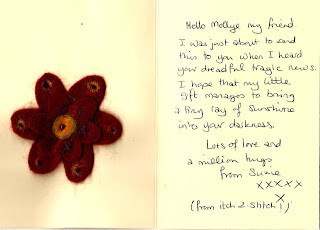 Hello Mollye my friend.
I was just about to send
this to you when I heard
your dreadful tragic news.
I hope that my little
gift manages to bring
a tiny ray of sunshine
into your darkness.
Lots of love and
a million hugs
from Suzie
xxxxx
x
(from itch 2 stitch!)